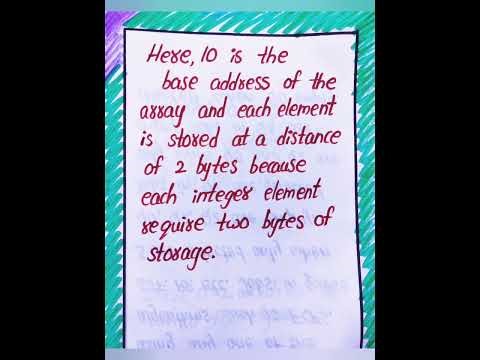 Here, 10 is the
base address of the
array and each element
is stored at a distance
of 2 bytes because
each integer element
require two bytes of
storage.